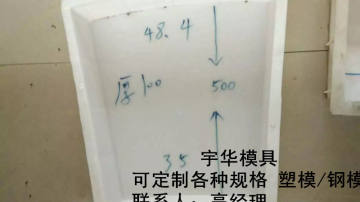 48.4
厚100 500
35
宇华模具
可定制各种规格 塑模/钢模
联系人：高经理